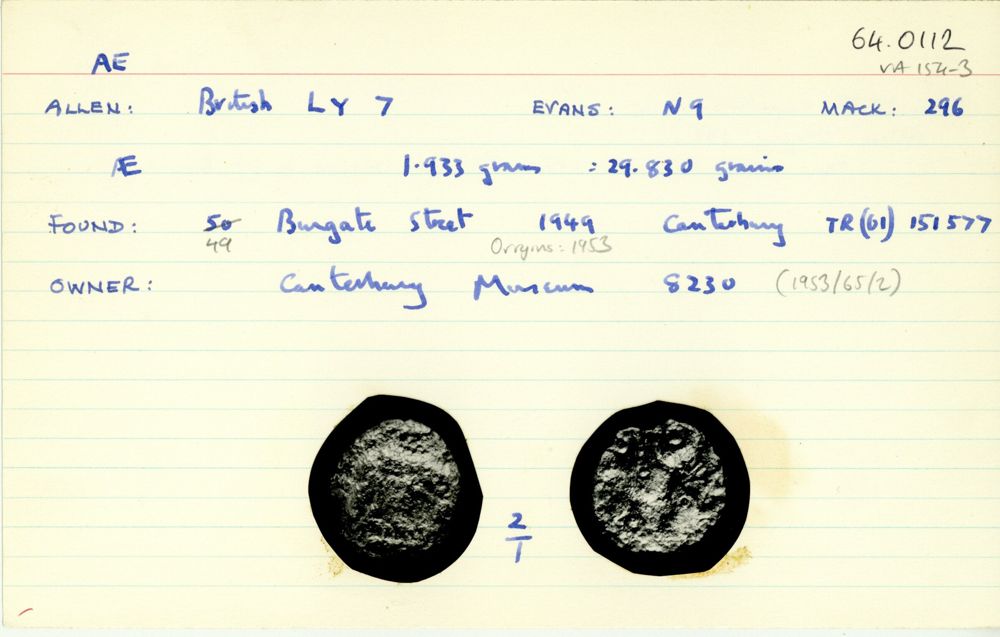 64.0112
AE VA 154-3
ALLEN: British LY 7 EVANS: N 9 MACK: 296
Æ 1.933 grams = 29.830 grains
FOUND: 50 Burgate Street 1949 Canterbury TR(61) 151577
49 Orryins: 1953
OWNER: Canterbury Museum 8230 (1953/65/2)
2
1